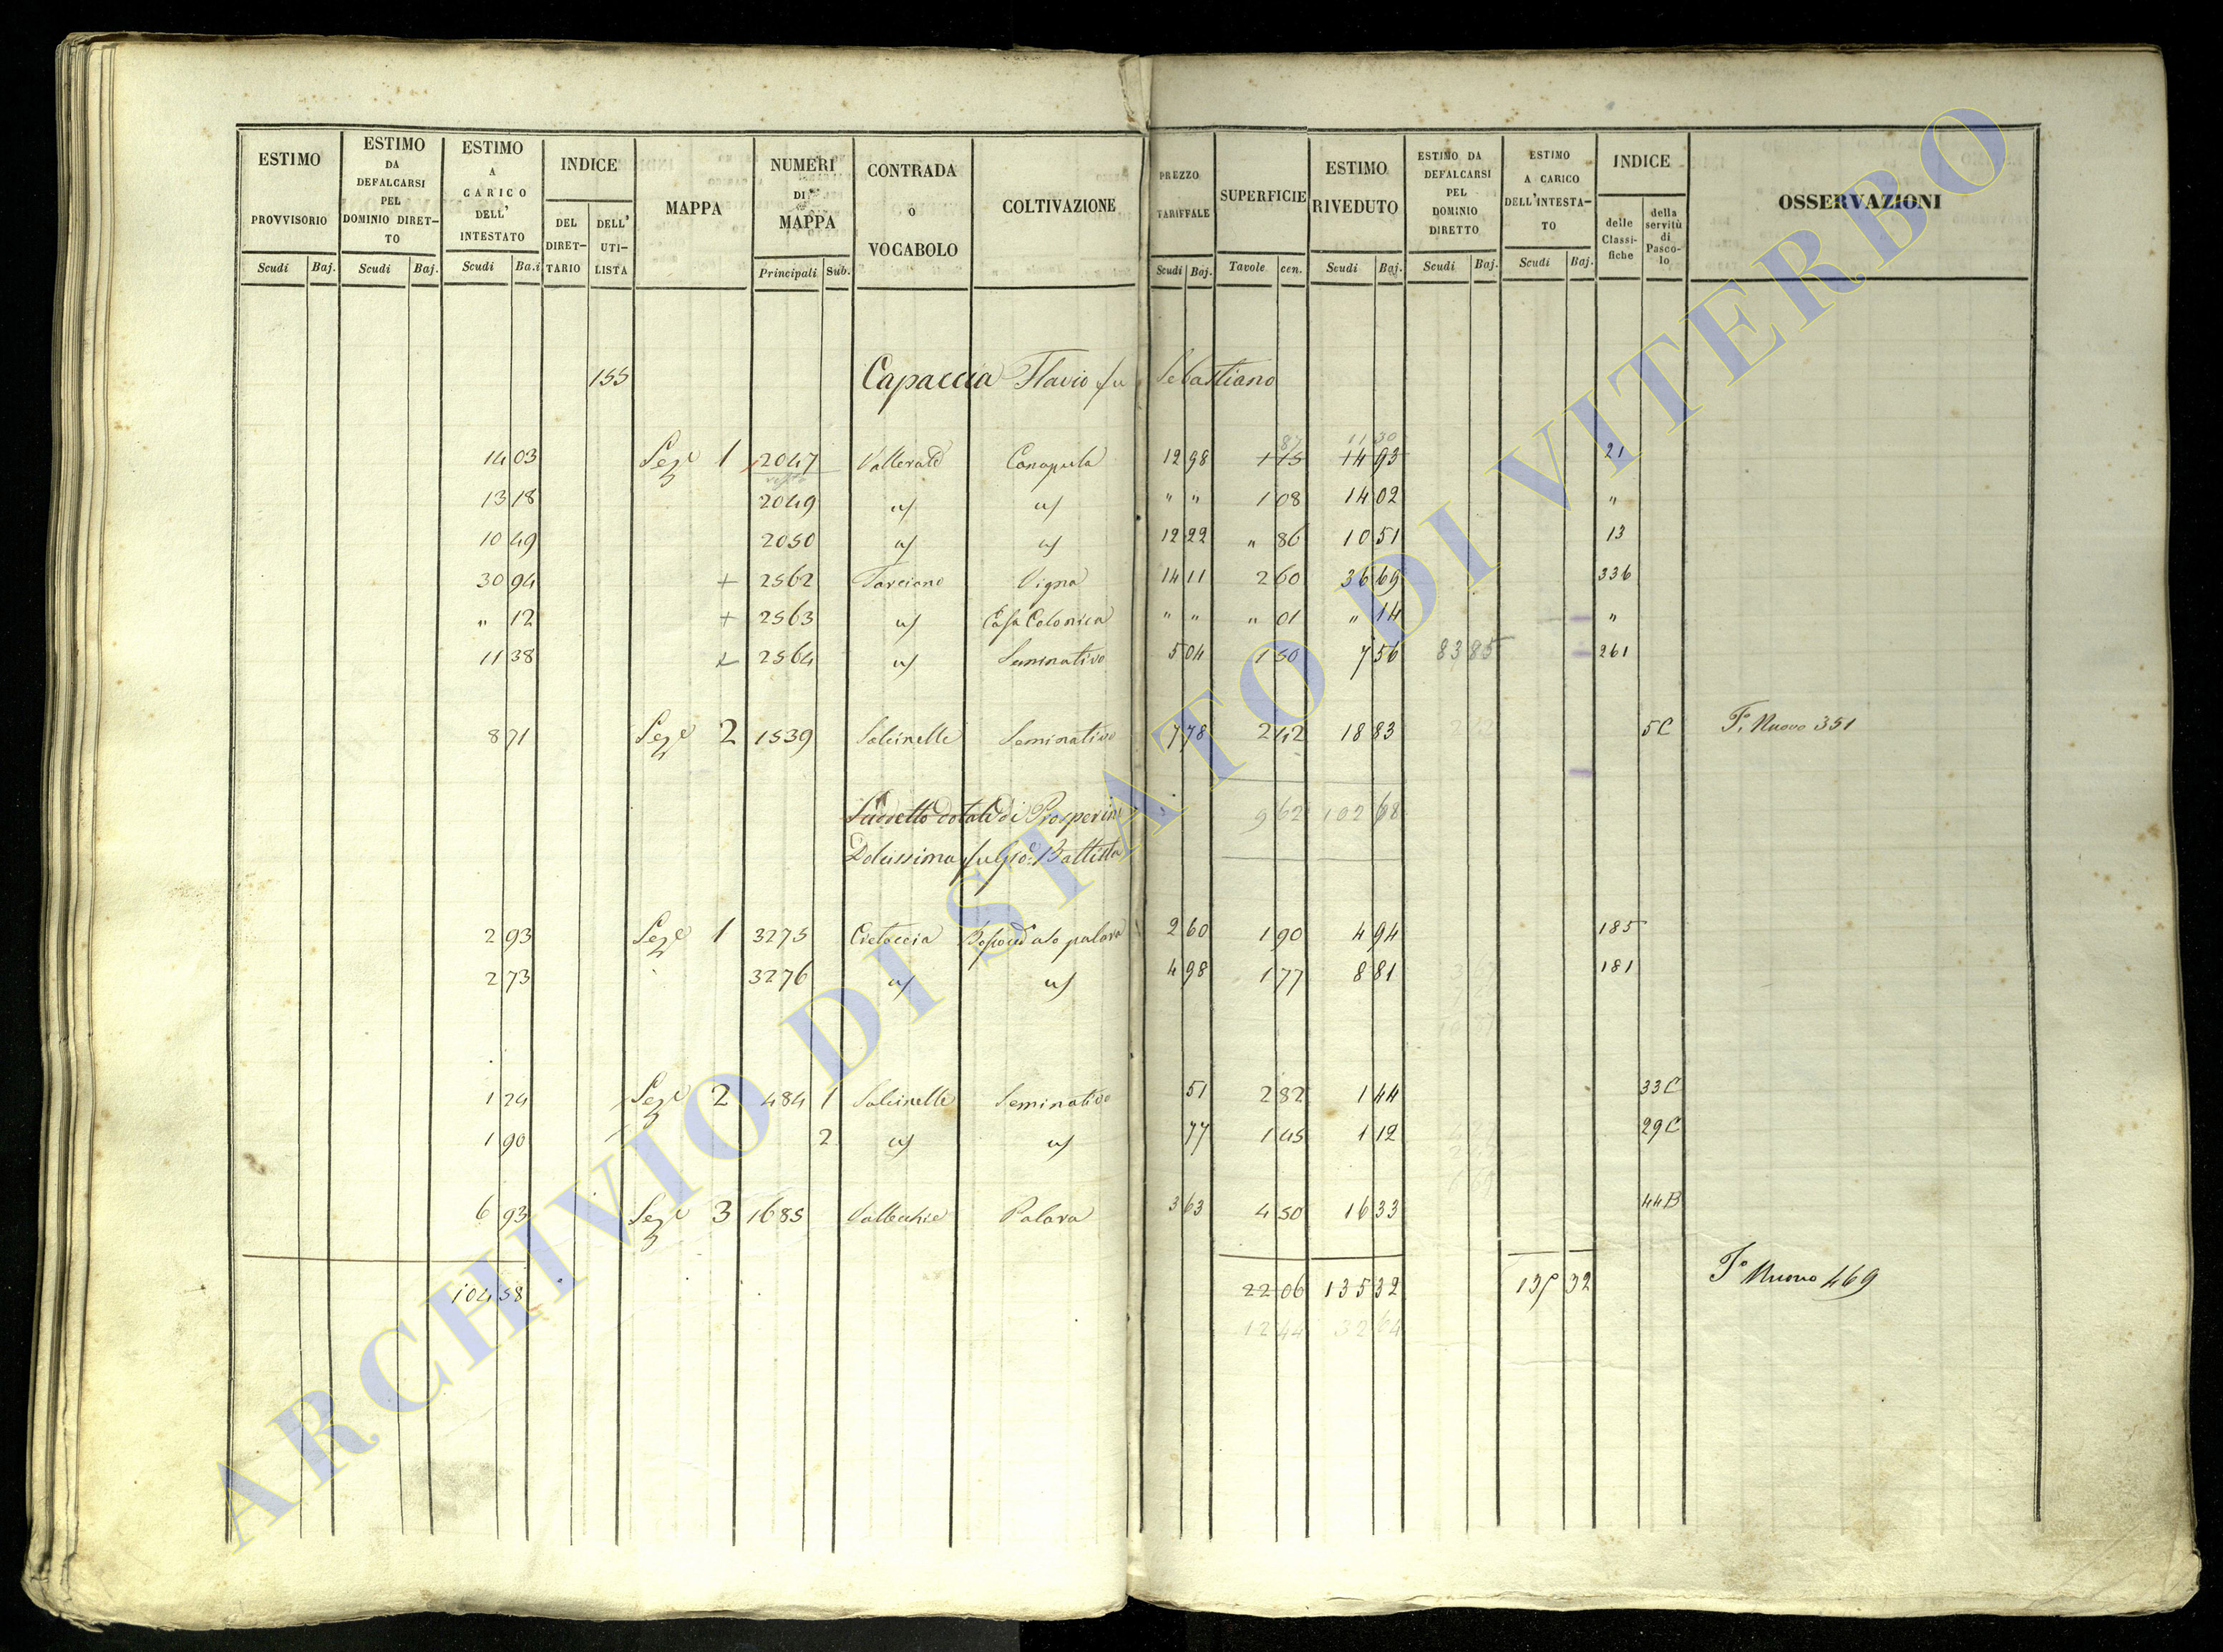 ESTIMO PROVVISORIO Scudi Baj.
ESTIMO DA DEFALCARSI PEL DOMINIO DIRET-TO Scudi Baj.
ESTIMO A CARICO DELL' INTESTATO Scudi Ba.i
INDICE DEL DIRET-TARIO DELL' UTI-LISTA
MAPPA
NUMERI DI MAPPA Principali Sub.
CONTRADA O VOCABOLO
COLTIVAZIONE
PREZZO TARIFFALE Scudi Baj.
SUPERFICIE Tavole cen.
ESTIMO RIVEDUTO Scudi Baj.
ESTIMO DA DEFALCARSI PEL DOMINIO DIRETTO Scudi Baj.
ESTIMO A CARICO DELL'INTESTA-TO Scudi Baj.
INDICE delle Classi-fiche della servitù di Pasco-lo
OSSERVAZIONI
155 Capaccia Flavio fu Sebastiano
87 11 30
14 03 Seze 1 2047 Vallerale Canapula 12 98 1 15 14 93 21
13 18 2049 u/ u/ " " 1 08 14 02 "
10 49 2050 u/ u/ 12 22 " 86 10 51 13
30 94 + 2562 Tarciano Vigna 14 11 2 60 36 69 336
" 12 + 2563 u/ Casa Colonica " " " 01 " 14 "
11 38 + 2564 u/ Seminativo 5 04 1 50 7 56 83 85 261
8 71 Seze 2 1539 Salcinelle Seminativo 7 78 2 42 18 83 5C Fo Nuovo 351
Suddetto dotale di Prosperini 9 62 102 68
Dolcissima fu Gio: Battista
2 93 Seze 1 3275 Cretoccia palara 2 60 1 90 4 94 185
2 73 3276 u/ u/ 4 98 1 77 8 81 181
1 24 Seze 2 484 1 Salcinelle Seminativo 51 2 82 1 44 33C
1 90 2 u/ u/ 77 1 45 1 12 29C
6 93 Seze 3 1685 Vallecchie Palara 3 63 4 50 16 33 44B
104 58 22 06 135 32 135 32 Fo Nuovo 469
12 44 32 64
ARCHIVIO DI STATO DI VITERBO